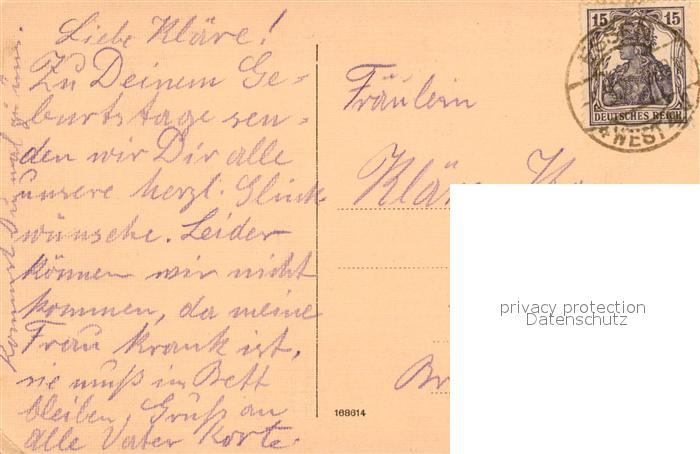 Liebe Kläre!
Zu Deinem Ge-
burtstage sen-
den wir Dir alle
unsere herzl. Glück
wünsche. Leider
können wir nicht
kommen, da meine
Frau krank ist,
sie muß im Bett
bleiben, Gruß an
alle Vater Korte
Kommst Du mal zu uns.
Fräulein
Kläre
168614
15 15
DEUTSCHES REICH
WEST
privacy protection
Datenschutz